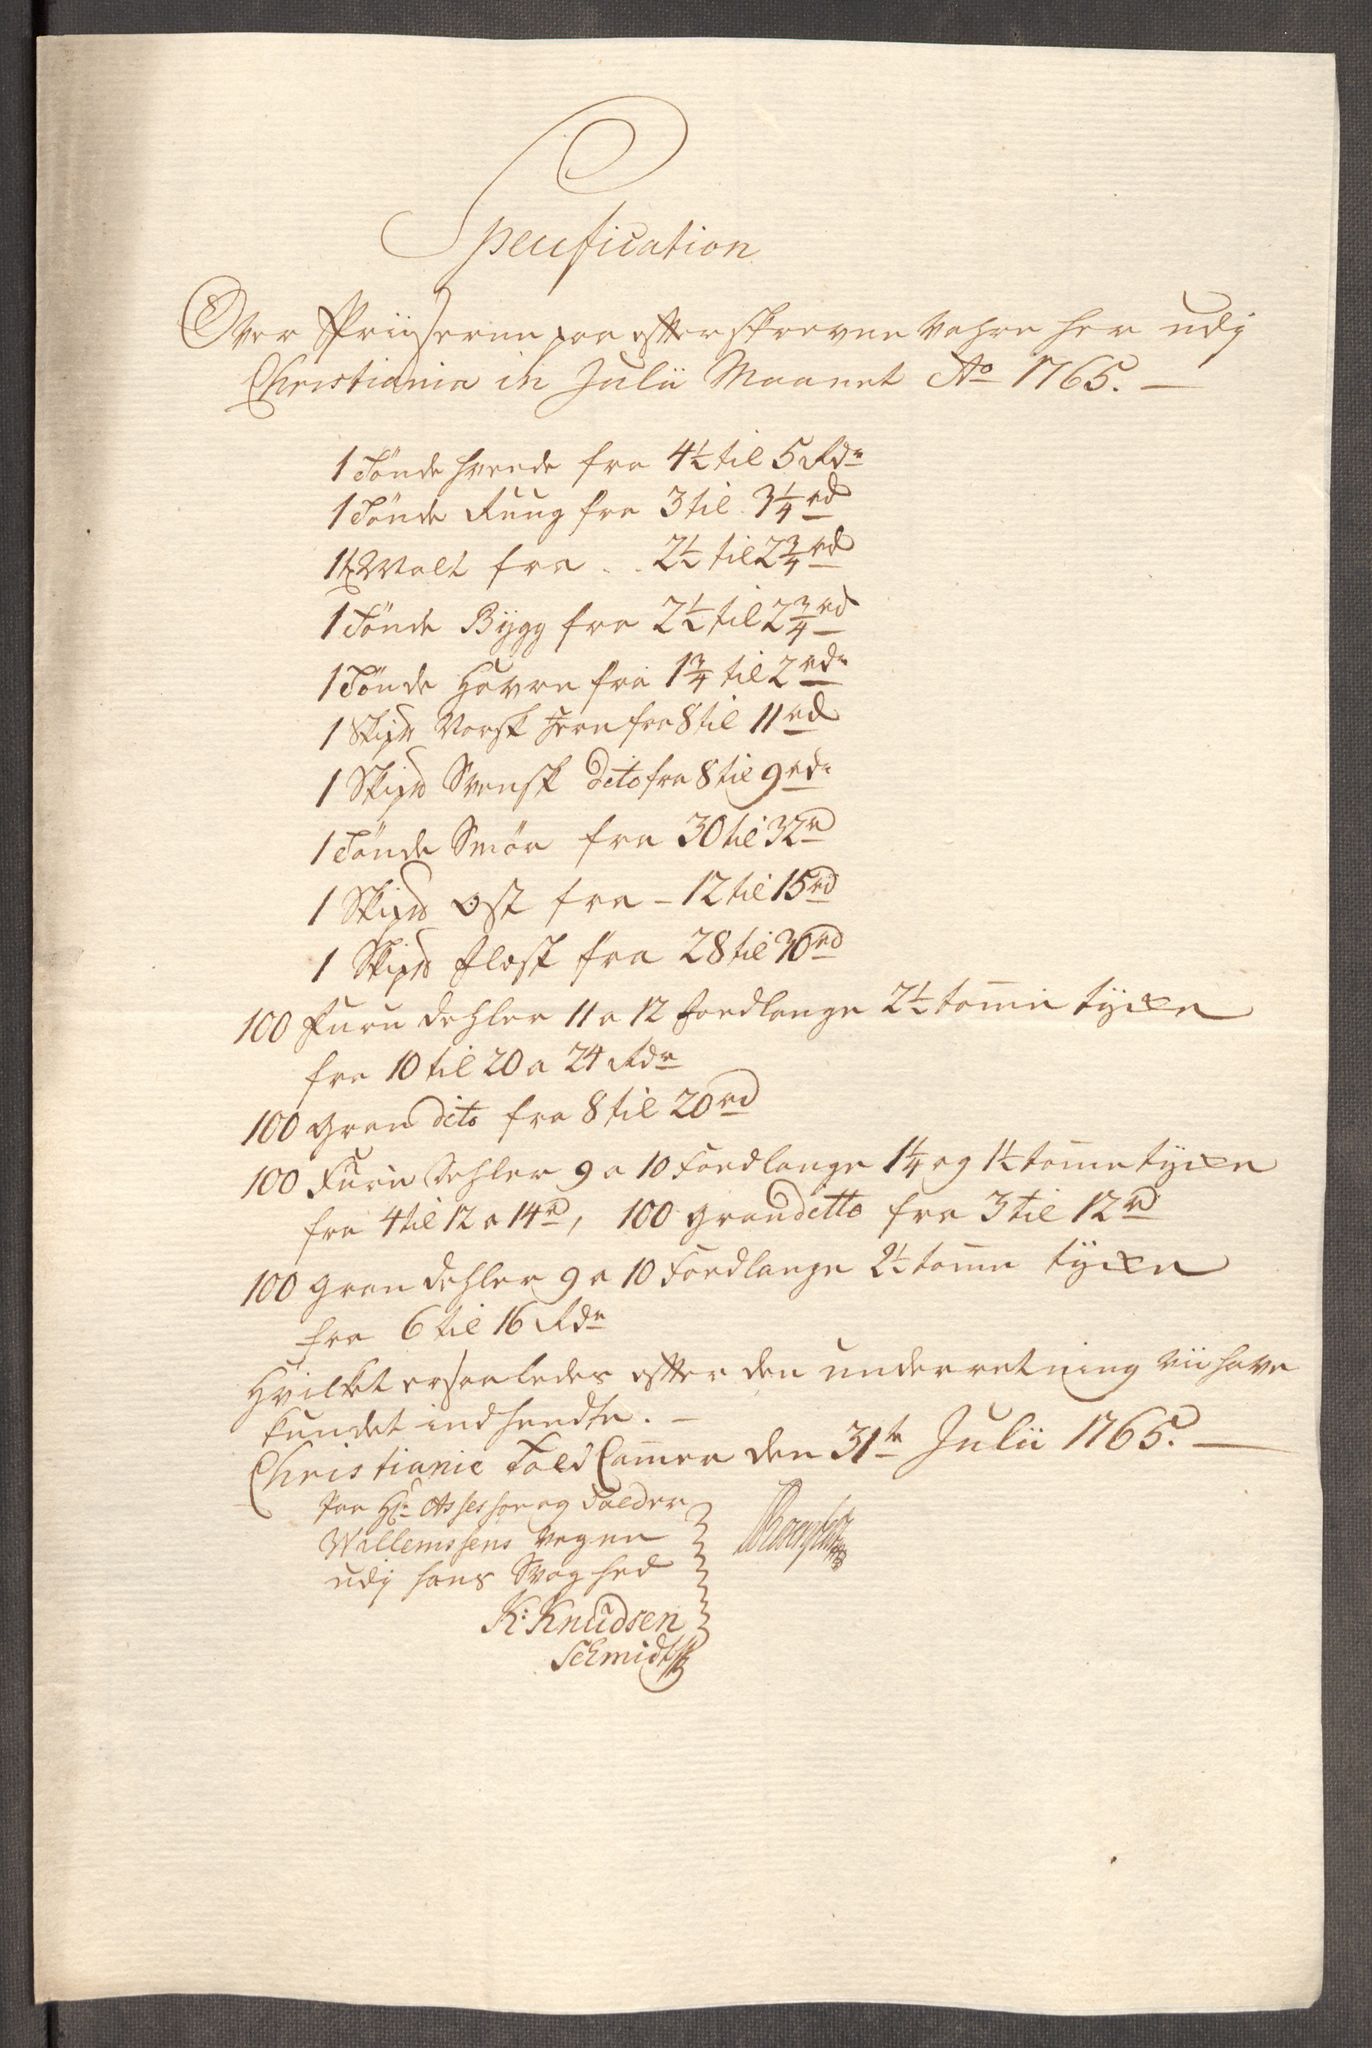 Specification
Over Priiserne paa efterskrevne Vahre her udj
Christiania in Julii Maanet Ao 1765. —
1 Tönde Hvede fra 4½ til 5 Rdr
1 Tönde Rug fra 3 til 3¼ rd
1 Malt fra .. 2½ til 2¾ rd
1 Tönde Bÿgg fra 2½ til 2¾ rd
1 Tönde Havre fra 1¾ til 2 rdr
1 Skipd Norsk Jern fra 8 til 11 rd
1 Skipd Svensk dito fra 8 til 9 rdr
1 Tönde Smör fra 30 til 32 r
1 Skipd Ost fra – 12 til 15 rd
1 Skipd Flesk fra 28 til 30 rd
100 Furu Dehler 11 a 12 Foedlange 2½ tomme tÿcke
fra 10 til 20 a 24 Rdr
100 Gran dito fra 8 til 20 rd
100 Furu Dehler 9 a 10 Foedlange 1¼ og 1½ tomme tÿcke
fra 4 til 12 a 14 rd, 100 Gran ditto fra 3 til 12 rd
100 Gran Dehler 9 a 10 Foedlange 2½ tomme tÿcke
fra 6 til 16 Rdr
Hvilket ersaaledes efter den underretning vii have
kundet indhendte. –
Christianie Told Cammer den 31te Julii 1765. —
Paa Hr Assessor og Tolder
Willemssens Vegne
udj hans Svaghed
K: Knudsen
Schmidt